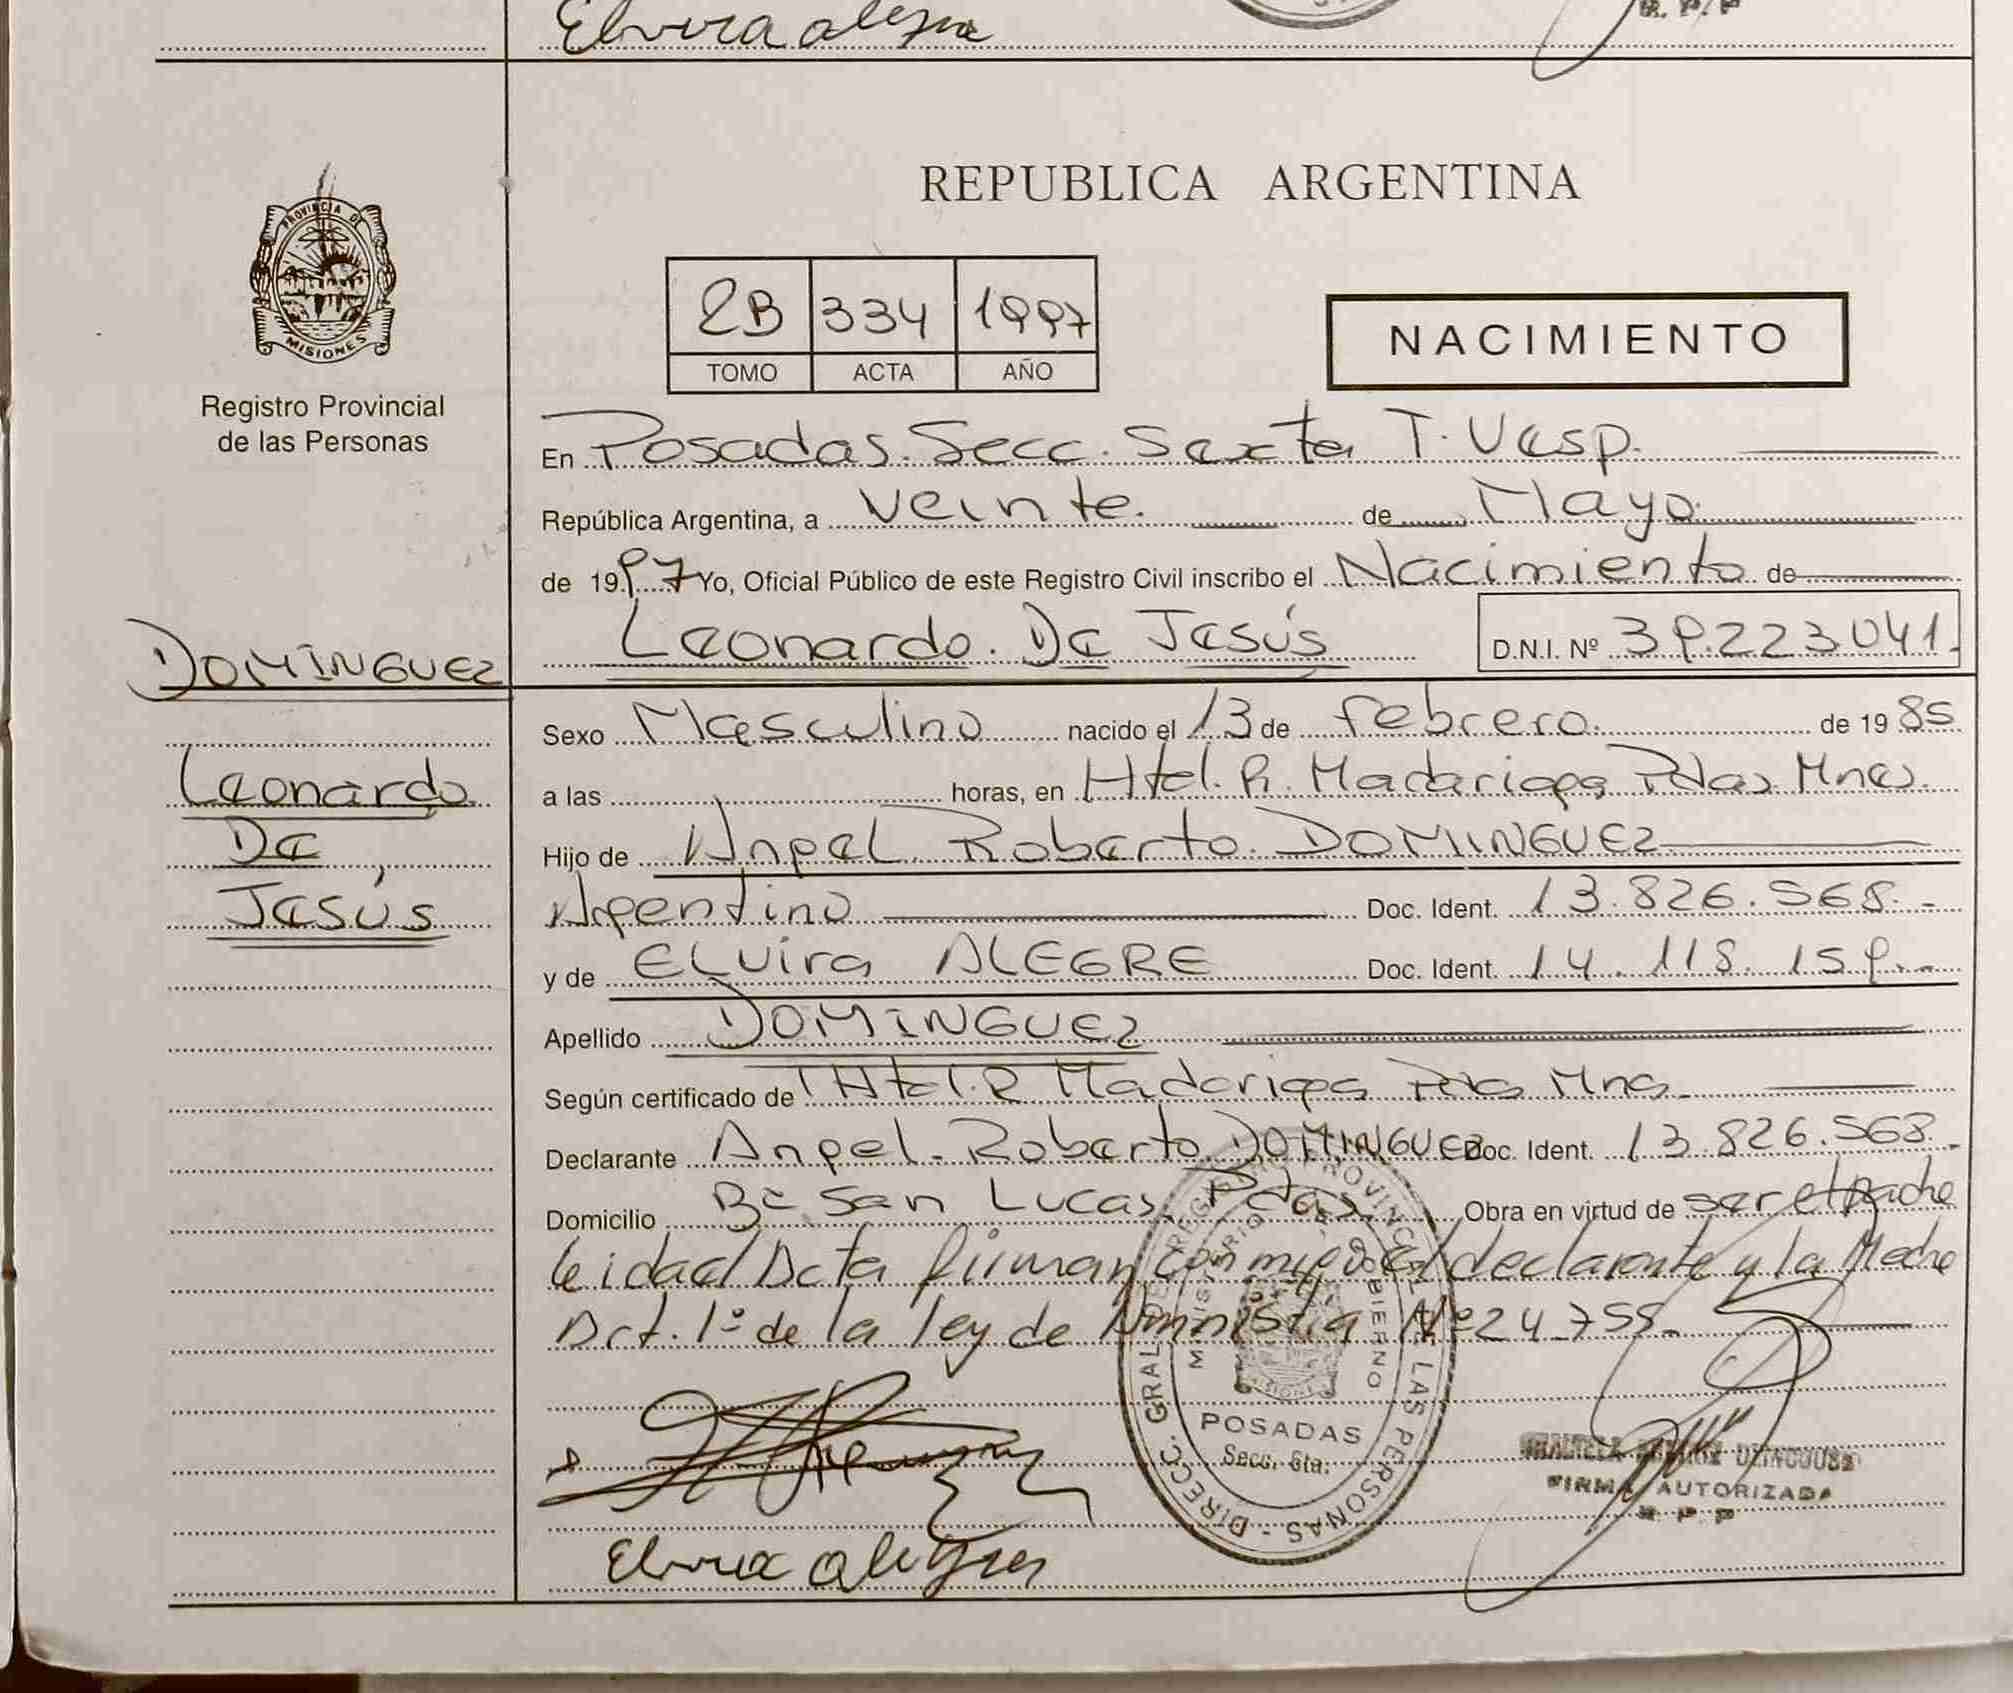 Elvira alegre
R. P. P
REPUBLICA ARGENTINA
PROVINCIA DE
MISIONES
Registro Provincial
de las Personas
2B 334 1997
TOMO ACTA AÑO
NACIMIENTO
En Posadas. Secc. Sexta T. Vesp.
República Argentina, a veinte. de Mayo
de 1997 Yo, Oficial Público de este Registro Civil inscribo el Nacimiento de
Leonardo. De Jesús D.N.I. Nº 39.223.041.
DOMINGUEZ
Leonardo
De
Jesús
Sexo Masculino nacido el 13 de febrero. de 1985
a las horas, en Htal. R. Madariaga Pdas Mnes.
Hijo de Angel Roberto DOMINGUEZ
Argentino Doc. Ident. 13.826.568.-
y de ELVira ALEGRE Doc. Ident. 14.118.159.-
Apellido DOMINGUEZ
Según certificado de Htal. R Madariaga Pdas Mnes.
Declarante Angel. Roberto DOMINGUEZ Doc. Ident. 13.826.568.-
Domicilio Bº San Lucas. Pdas. Obra en virtud de ser el padre
Leidad Acta firman conmigo el declarante y la Madre
Art. 1º de la ley de Amnistia Nº 24.755.
DIRECC. GRAL. DE REGISTRO PROVINCIAL DE LAS PERSONAS -
MINISTERIO DE GOBIERNO
MISIONES
POSADAS
Secc. 6ta.
FIRMA AUTORIZADA
R. P. P
Elvira alegre